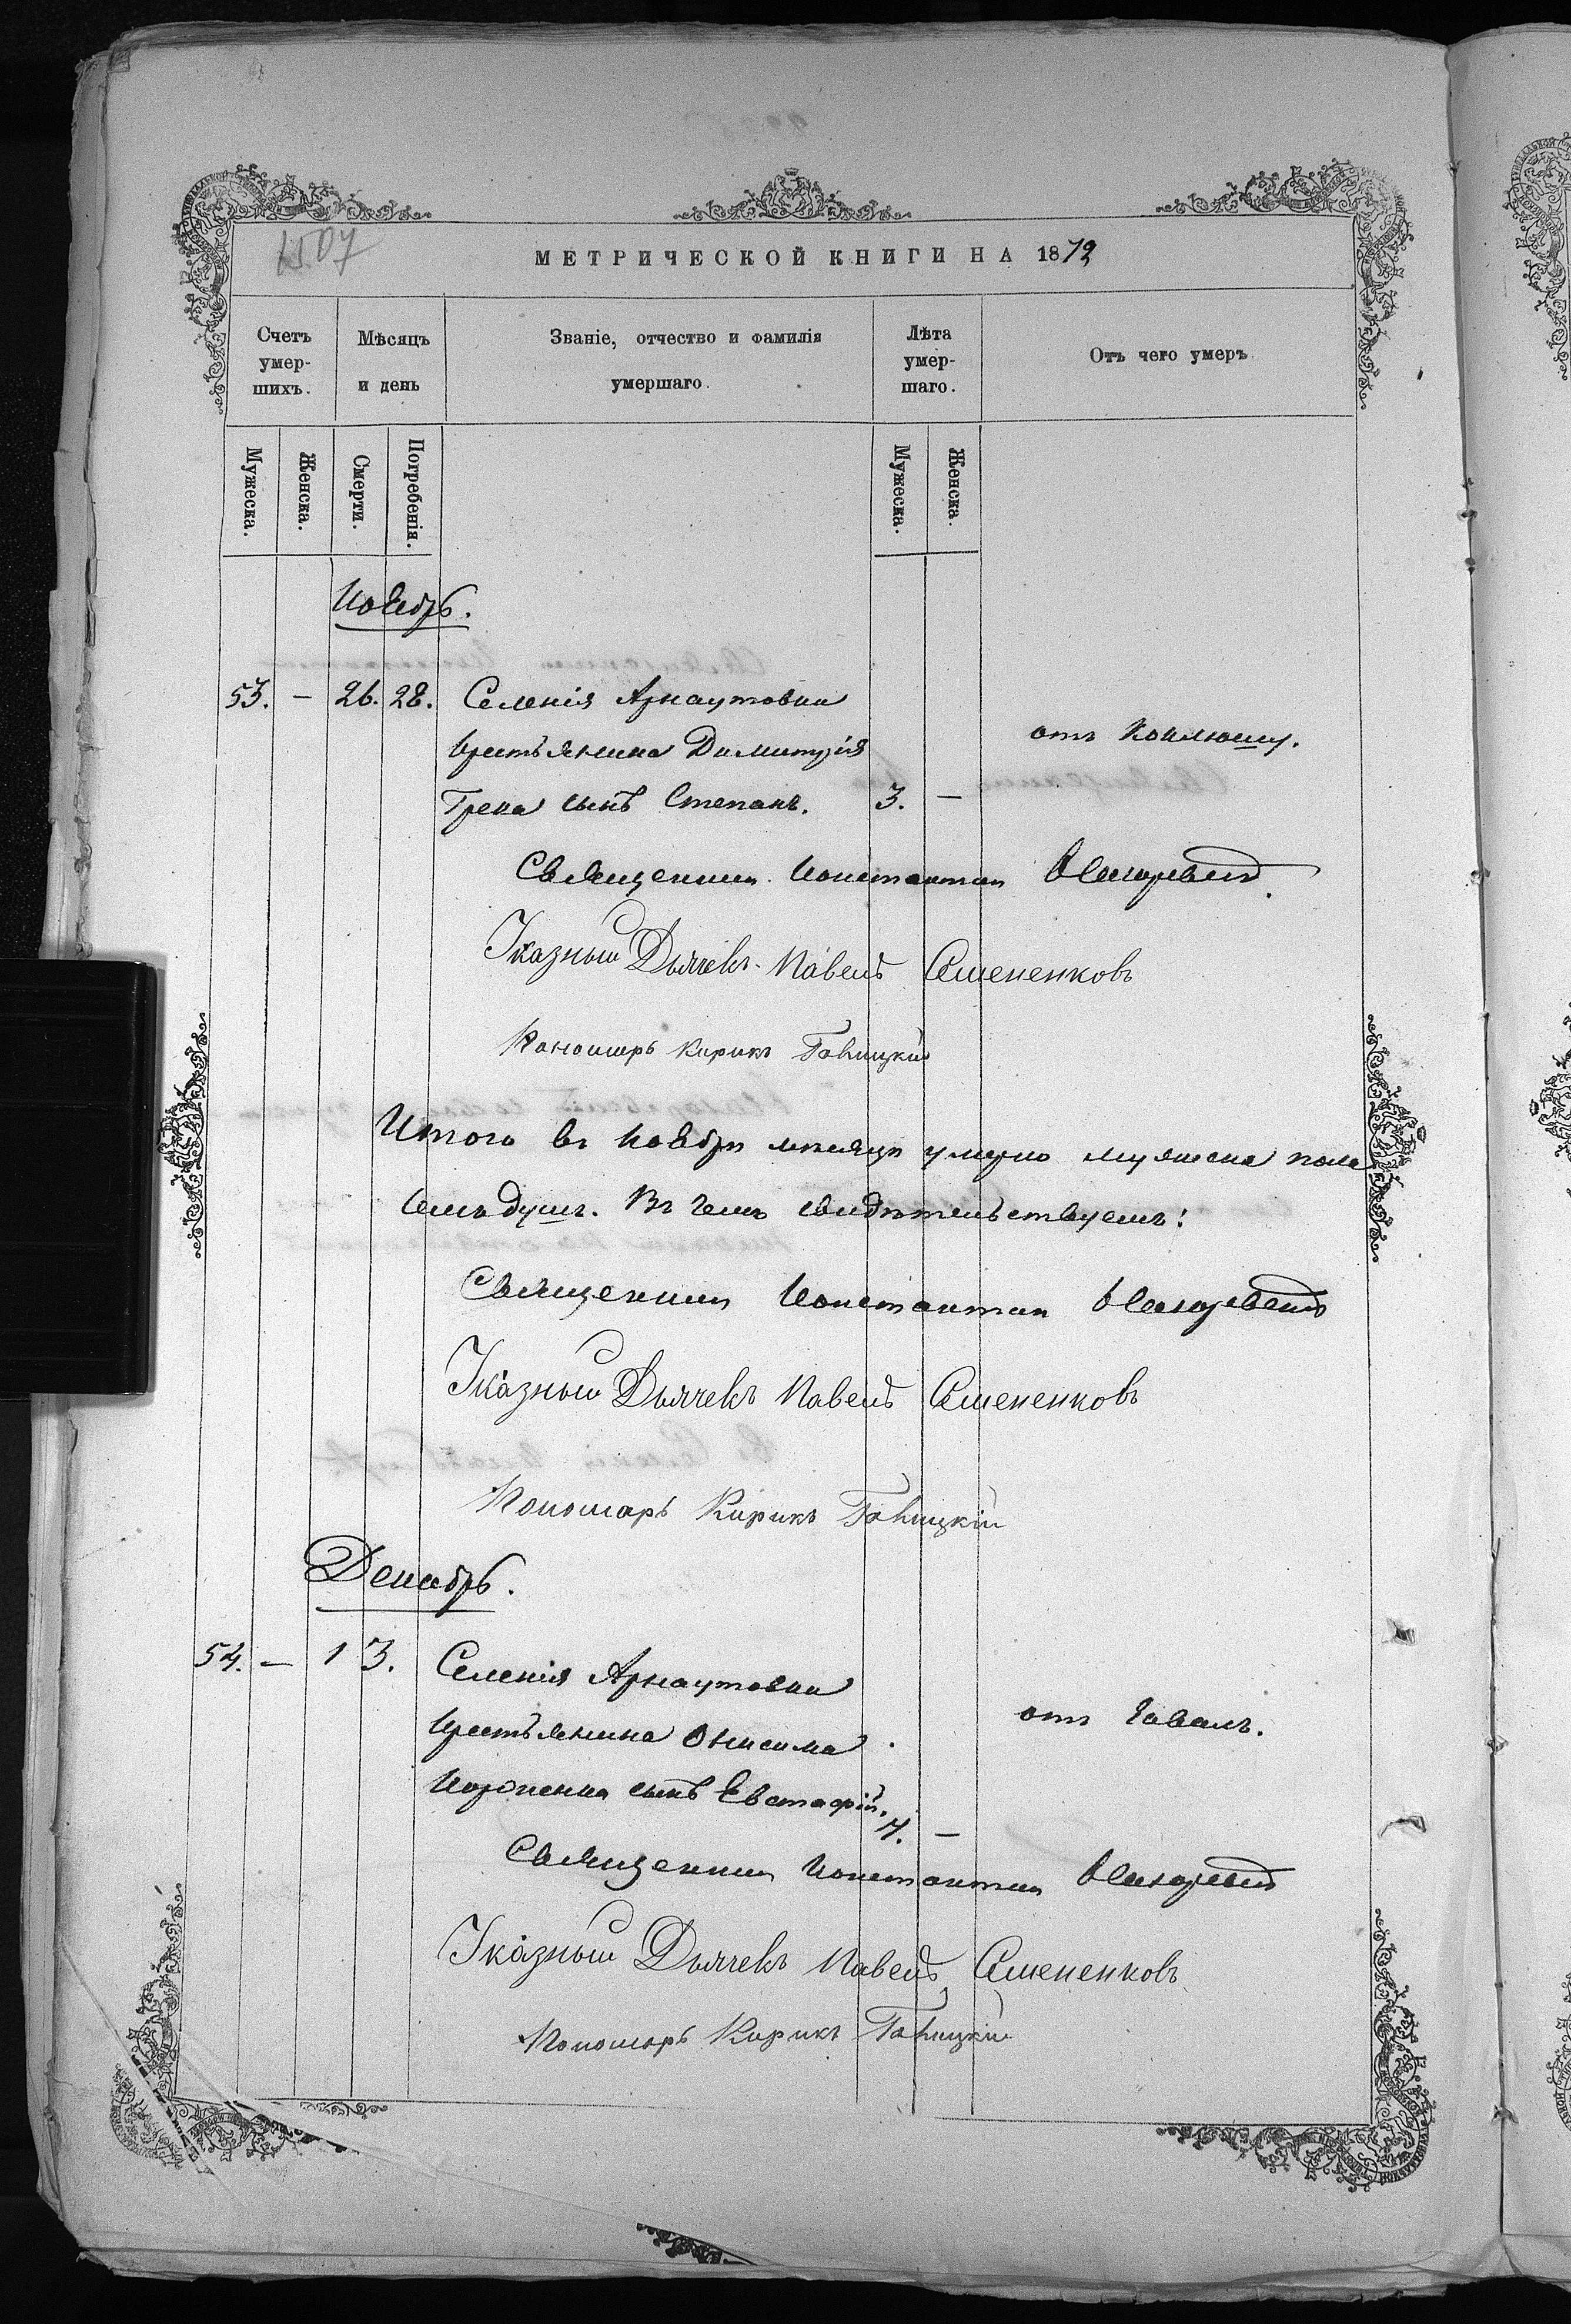 1507
МЕТРИЧЕСКОЙ КНИГИ НА 1872
Счетъ умер-шихъ.
Мѣсяцъ и день
Званіе, отчество и фамилія умершаго.
Лѣта умер-шаго.
Отъ чего умеръ
Мужеска.
Женска.
Смерти.
Погребенія.
Мужеска.
Женска.
Ноябрь.
53. — 26. 28. Селенія Арнаутовки
крестьянина Димитрія
отъ коклюшу.
Грека сынъ Стефанъ. 3. —
Священникъ Константинъ
Указный Дьячекъ Павелъ
Пономарь Кирикъ
Итого въ ноябрѣ мѣсяцѣ умерло мужеска пола
семь душъ. Въ чемъ свидѣтельствуемъ:
Священникъ Константинъ
Указный Дьячекъ Павелъ
Пономарь Кирикъ
Декабрь.
54. — 1 3. Селенія Арнаутовки
крестьянина Онисима
отъ
сынъ Евстафій.
—
Священникъ Константинъ
Указный Дьячекъ Павелъ
Пономарь Кирикъ